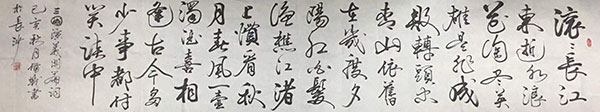 滚〻長江
東逝水浪
花淘盡英
雄是非成
敗轉頭空
青山依舊
在幾度夕
陽紅白髮
漁樵江渚
上慣看秋
月春風一壺
濁酒喜相
逢古今多
少事都付
笑談中
三國演義開篇詞
己亥秋月書
於長沙